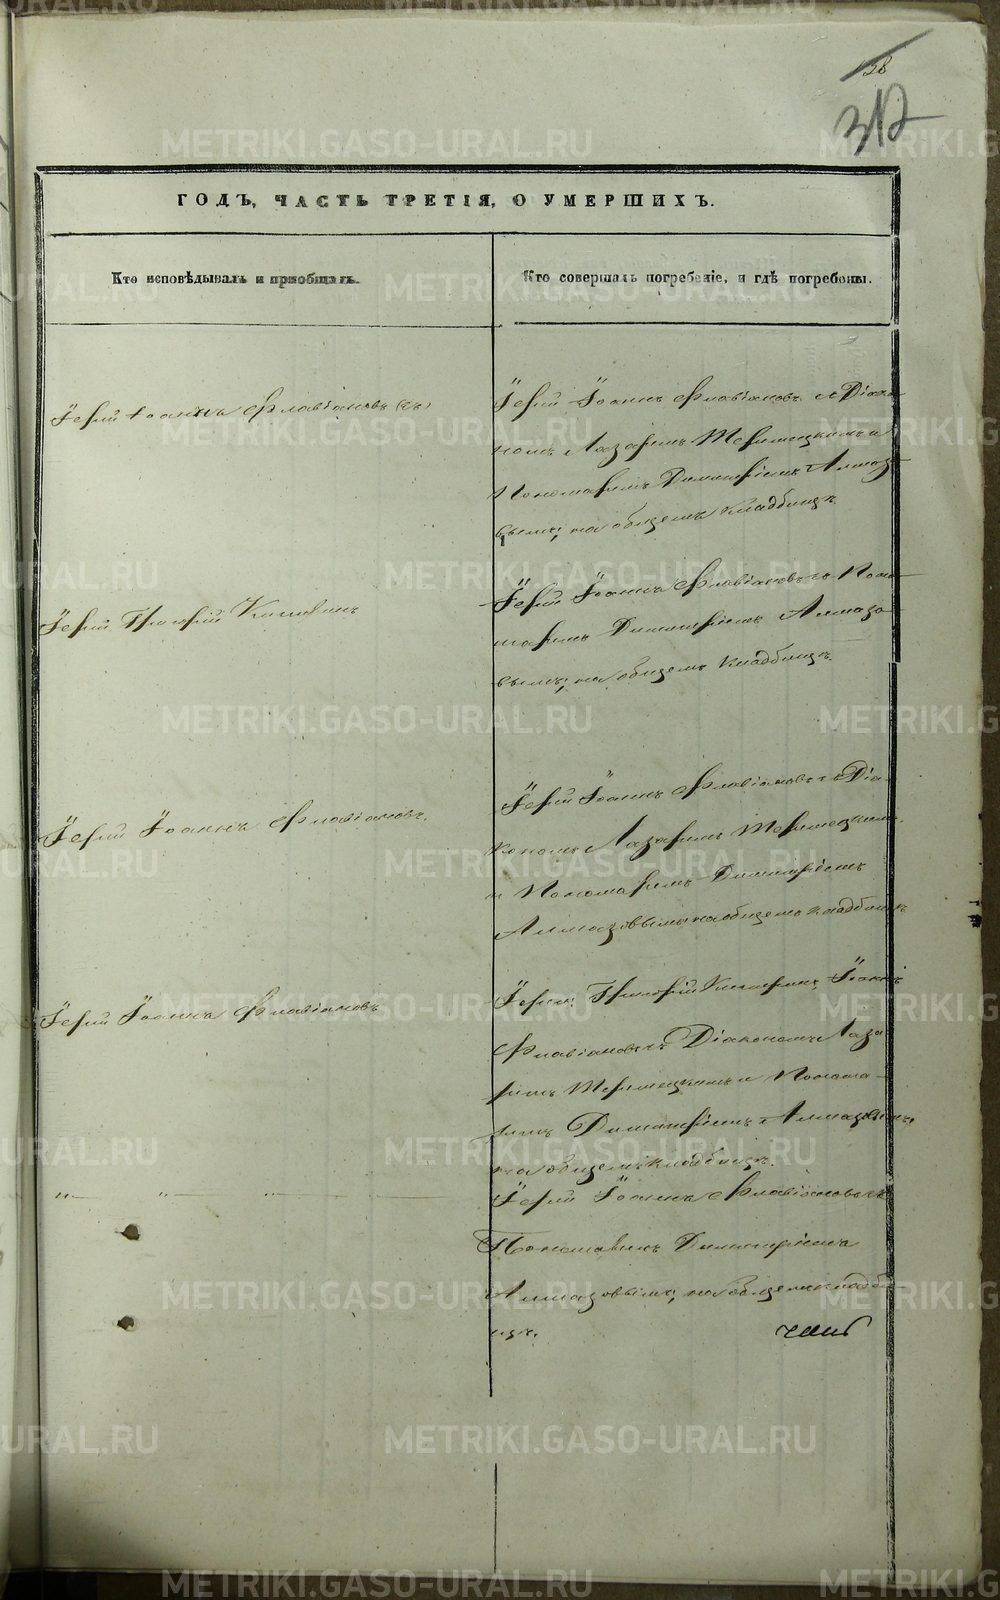 38
312
ГОДЪ, ЧАСТЬ ТРЕТІЯ, О УМЕРШИХЪ.
Кто исповѣдывалъ и пріобщалъ.
Кто совершалъ погребеніе, и гдѣ погребены.
Іерей Іоаннъ Флавіановъ
Іерей Іоаннъ Флавіановъ съ Діако-
номъ Лазаремъ и
Пономаремъ Димитріемъ Алмазо-
вымъ; на общемъ кладбищѣ.
Іерей Григорій
Іерей Іоаннъ Флавіановъ съ Поно-
маремъ Димитріемъ Алмазо-
вымъ; на общемъ кладбищѣ.
Іерей Іоаннъ Флавіановъ.
Іерей Іоаннъ Флавіановъ съ Діа-
кономъ Лазаремъ
и Пономаремъ Димитріемъ
Алмазовымъ на общемъ кладбищѣ
Іерей Іоаннъ Флавіановъ
Іереи: Григорій Іоаннъ
Флавіановъ съ Діакономъ Лаза-
ремъ и Понома-
ремъ Димитріемъ Алмазовымъ,
на общемъ кладбищѣ.
„ „ „
Іерей Іоаннъ Флавіановъ съ
Пономаремъ Димитріемъ
Алмазовымъ; на общемъ кладби-
щѣ.
METRIKI.GASO-URAL.RU